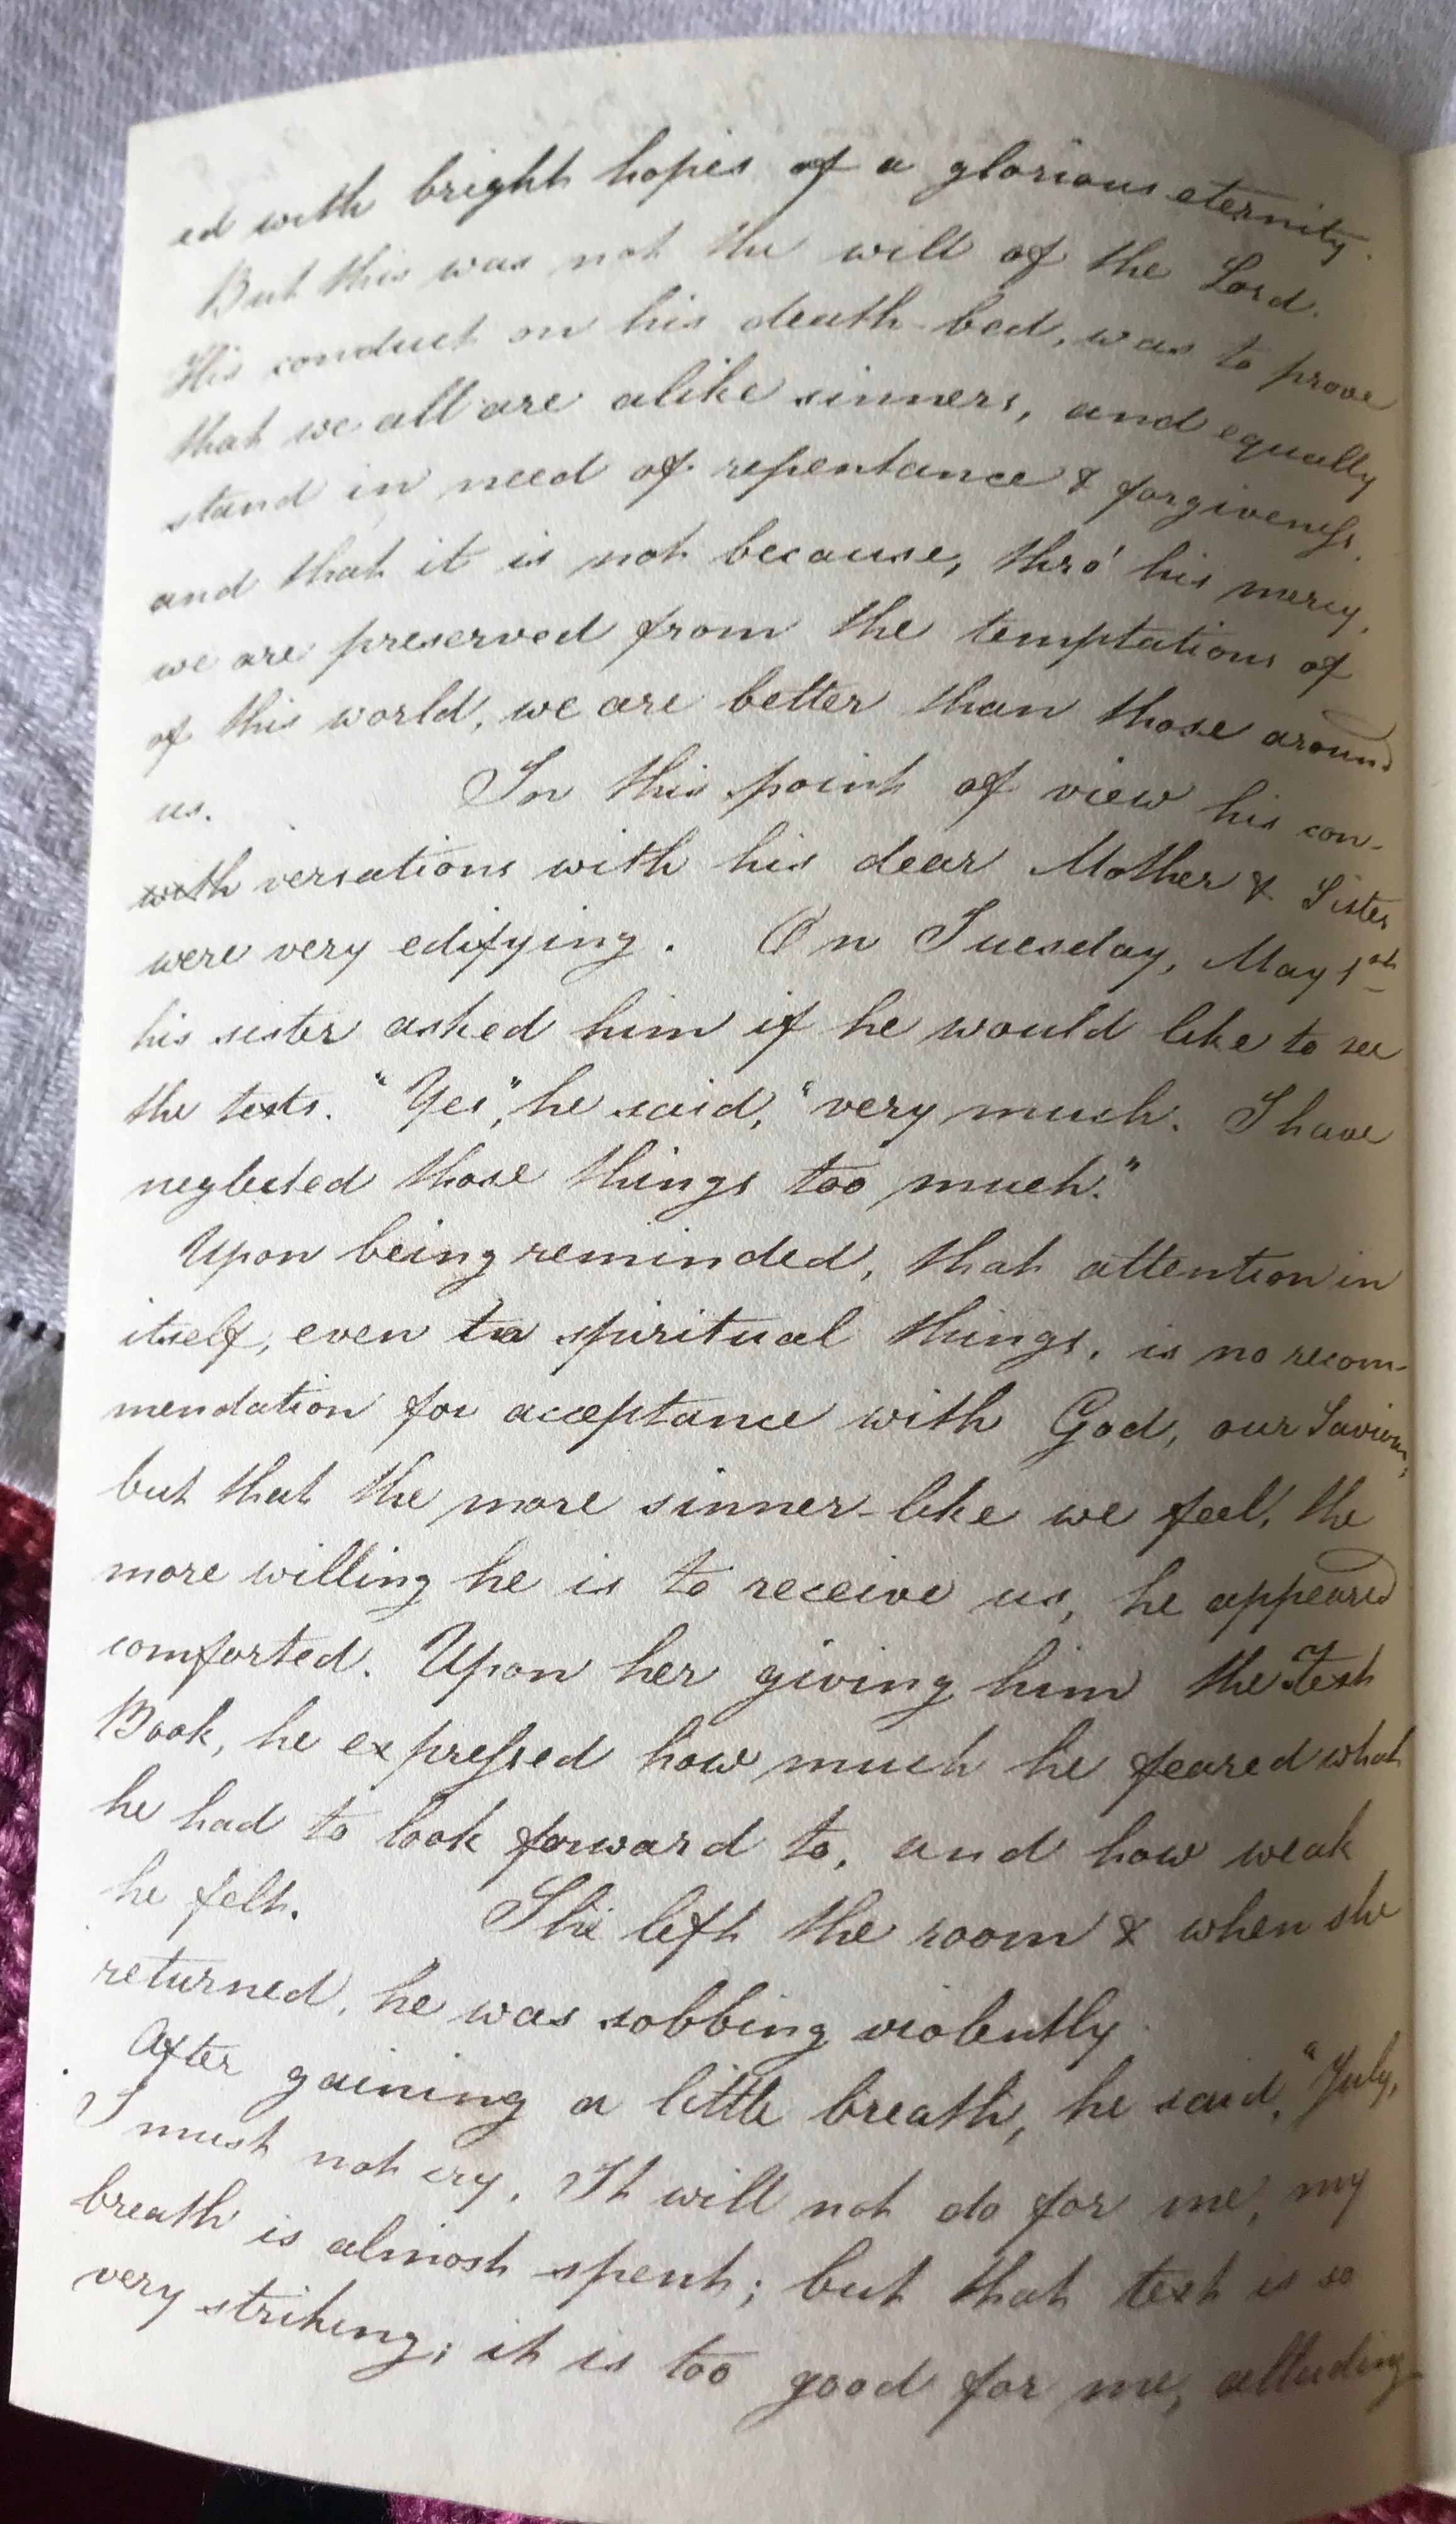 ed with bright hopes of a glorious eternity.
But this was not the will of the Lord.
His conduct on his death-bed, was to prove
that we all are alike sinners, and equally
stand in need of repentance & forgiveness,
and that it is not because, thro' his mercy,
we are preserved from the temptations of
of this world, we are better than those around
us. In this point of view his con-
with versations with his dear Mother & Sister
were very edifying. On Tuesday, May 1st
his sister asked him if he would like to see
the texts. "Yes," he said, "very much. I have
neglected those things too much."
Upon being reminded, that attention in
itself, even to spiritual things, is no recom-
mendation for acceptance with God, our Saviour,
but that the more sinner-like we feel, the
more willing he is to receive us, he appeared
comforted. Upon her giving him the Text
Book, he expressed how much he feared what
he had to look forward to, and how weak
he felt. She left the room & when she
returned, he was sobbing violently.
After gaining a little breath, he said, "July,
I must not cry. It will not do for me, my
breath is almost spent; but that text is so
very striking; it is too good for me, alluding